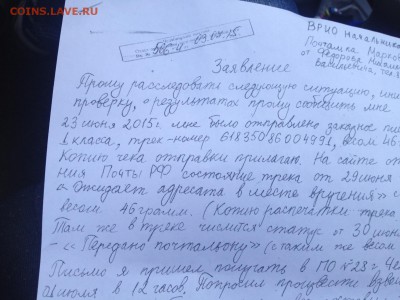 COINS.LAVE.RU
ВРИО начальника
Почтамта
от Федорова
Васильевича, тел.
Заявление
Прошу расследовать следующую ситуацию,
проверку, о результатах прошу сообщить мне
23 июня 2015г. мне было отправлено заказное
1 класса, трек-номер 61835086004991, весом 46
Копию чека отправки прилагаю. На сайте
ния Почты РФ состояние трека от 29 июня
"Ожидает адресата в месте вручения" с
весом 46 грамм. (Копию распечатки трека
Там же в треке числится статус от 30 июня
- "Передано почтальону" (с таким же весом
Письмо я пришел получать в ПО №23 г.
июля в 12 часов. Попросил произвести